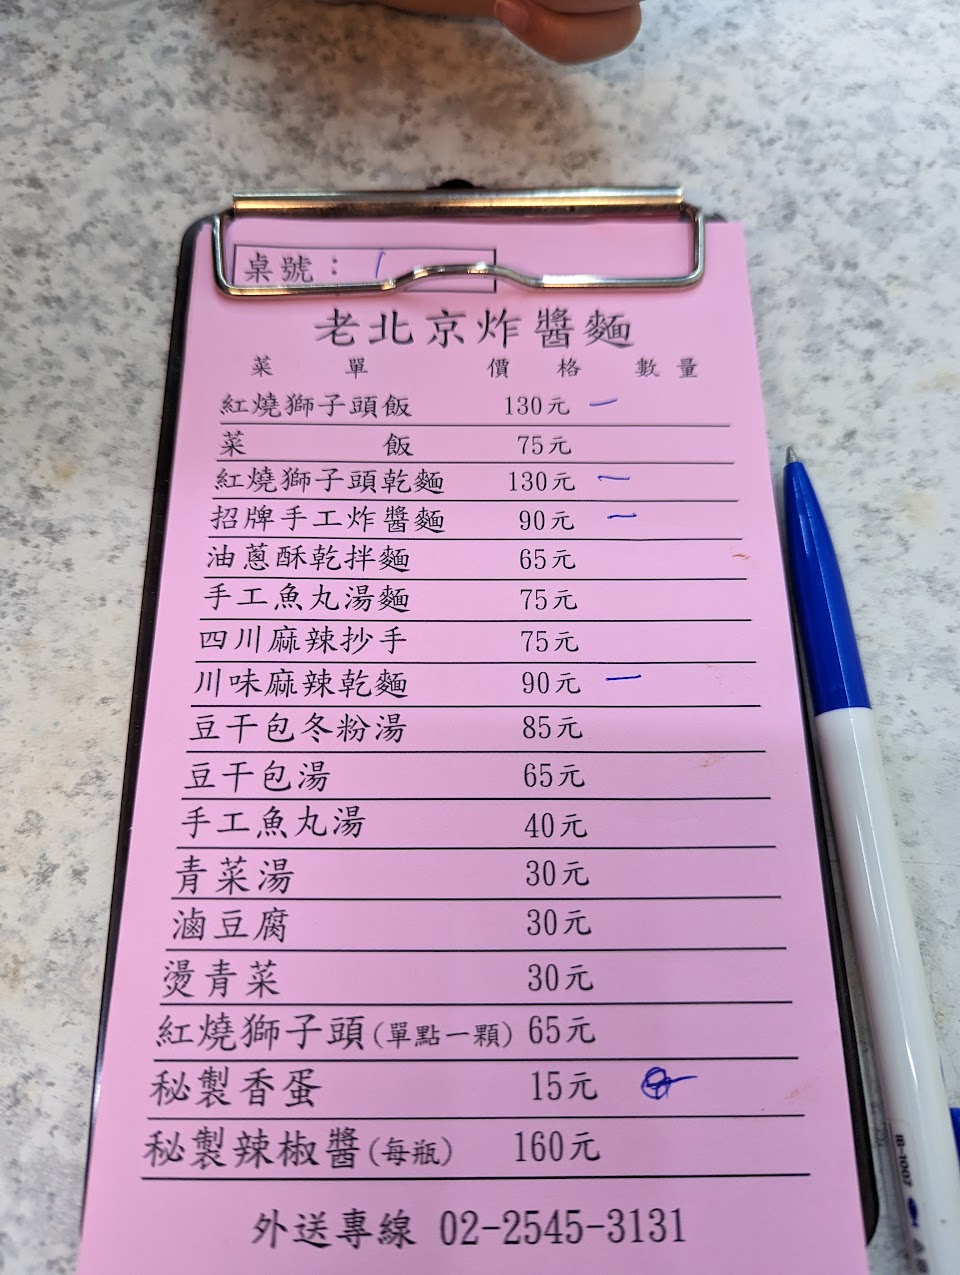 桌號： 1
老北京炸醬麵
菜單 價格 數量
紅燒獅子頭飯 130元 一
菜飯 75元
紅燒獅子頭乾麵 130元 一
招牌手工炸醬麵 90元 一
油蔥酥乾拌麵 65元
手工魚丸湯麵 75元
四川麻辣抄手 75元
川味麻辣乾麵 90元 一
豆干包冬粉湯 85元
豆干包湯 65元
手工魚丸湯 40元
青菜湯 30元
滷豆腐 30元
燙青菜 30元
紅燒獅子頭(單點一顆) 65元
秘製香蛋 15元
秘製辣椒醬(每瓶) 160元
外送專線 02-2545-3131
IB-1007